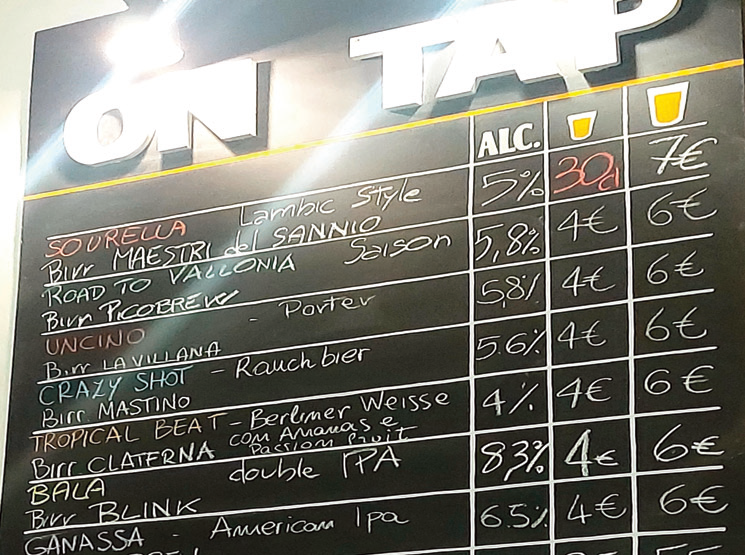 ON TAP
ALC.
SOURELLA Lambic Style 5% 30cl 7€
Birr MAESTRI del SANNIO
ROAD TO VALLONIA Saison 5,8% 4€ 6€
Birr PICOBREW
UNCINO - Porter 5,8% 4€ 6€
Birr LA VILLANA
CRAZY SHOT - Rauchbier 5.6% 4€ 6€
Birr MASTINO
TROPICAL BEAT - Berliner Weisse 4% 4€ 6€
con Ananas e
Passion Fruit
Birr CLATERNA
BALA double IPA 8.3% 4€ 6€
Birr BLINK
GANASSA - American Ipa 6.5% 4€ 6€